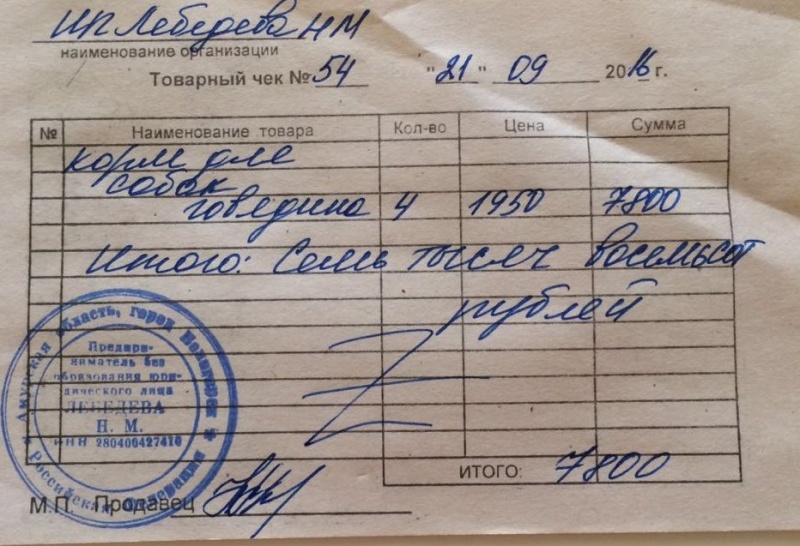 ИП Лебедева НМ
наименование организации
Товарный чек № 54 "21" 09 2016 г.
№ Наименование товара Кол-во Цена Сумма
корм для
собак
говядина 4 1950 7800
Итого: Семь тысяч восемьсот
рублей
ИТОГО: 7800
М.П. Продавец
Амурская область, город Белогорск
Российская Федерация
Предпри-
ниматель без
образования юри-
дического лица
ЛЕБЕДЕВА
Н. М.
ИНН 280400427410